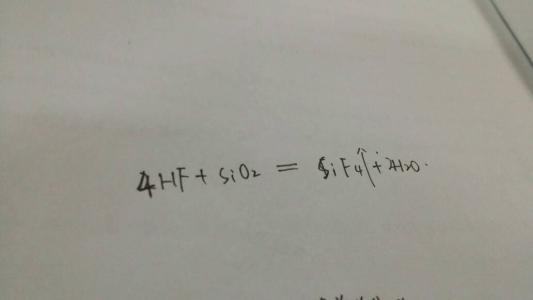 4HF + SiO2 = SiF4↑ + 2H2O